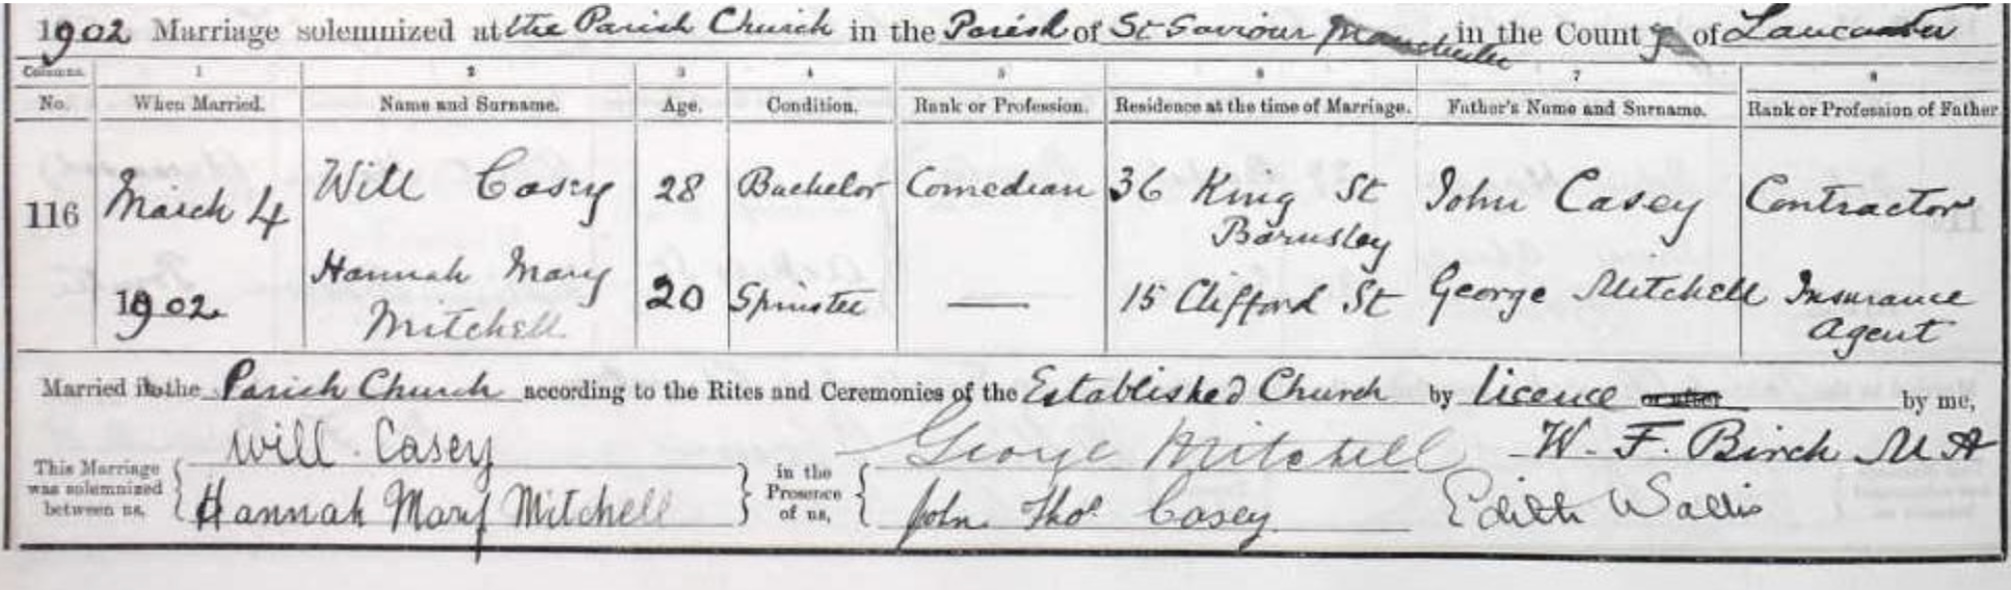 1902 Marriage solemnized at the Parish Church in the Parish of St Saviour Manchester in the County of Lancaster
Columns. 1 2 3 4 5 6 7 8
No. When Married. Name and Surname. Age. Condition. Rank or Profession. Residence at the time of Marriage. Father's Name and Surname. Rank or Profession of Father
116 March 4 Will Casey 28 Bachelor Comedian 36 King St John Casey Contractor
Barnsley
1902. Hannah Mary 20 Spinster — 15 Clifford St George Mitchell Insurance
Mitchell Agent
Married in the Parish Church according to the Rites and Ceremonies of the Established Church by licence or after by me,
Will. Casey George Mitchell W. F. Birch M A
This Marriage was solemnized between us, in the Presence of us,
Hannah Mary Mitchell John Thos. Casey Edith Wallis